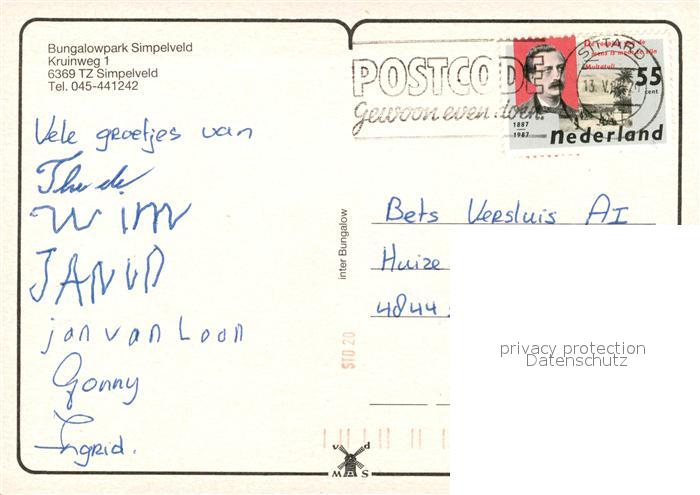 Bungalowpark Simpelveld
Kruinweg 1
6369 TZ Simpelveld
Tel. 045-441242
Vele groetjes van
Wim
jan van Loon
Gonny
Ingrid.
inter Bungalow
STO 20
v d
MAS
POSTCODE
Gewoon even doen.
SITTARD
13. V.
Multatuli
55
cent
1887
1987
nederland
Bets Versluis AI
Huize
4844
privacy protection
Datenschutz